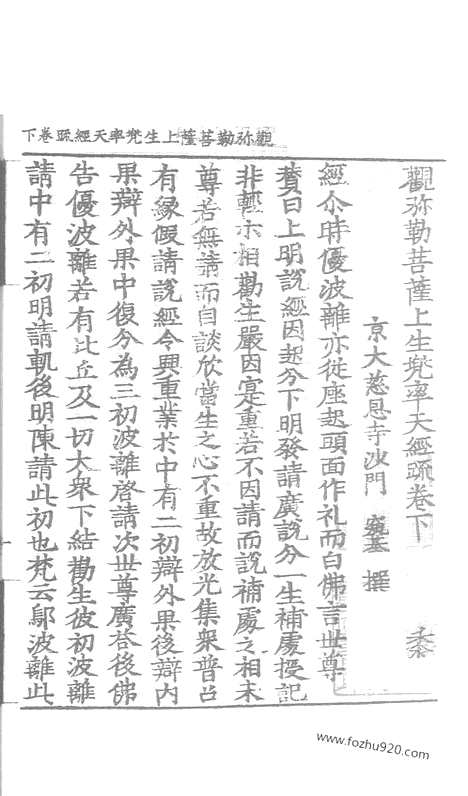 觀弥勒菩薩上生兜率天經疏卷下
觀弥勒菩薩上生兜率天經疏卷下 黍
京大慈恩寺沙門 窺基 撰
經尒時優波離亦從座起頭面作礼而白佛言世尊
賛曰上明説經因起分下明發請廣説分一生補處授記
非輕示相勸生嚴因寔重若不因請而説補處之相未
尊若無請而自談欣當生之心不重故放光集衆普召
有縁假請説經令興重業於中有二初辯外果後辯内
果辯外果中復分為三初波離啓請次世尊廣荅後佛
告優波離若有比丘及一切大衆下結勸生彼初波離
請中有二初明請軌後明陳請此初也梵云鄔波離此
www.fozhu920.com